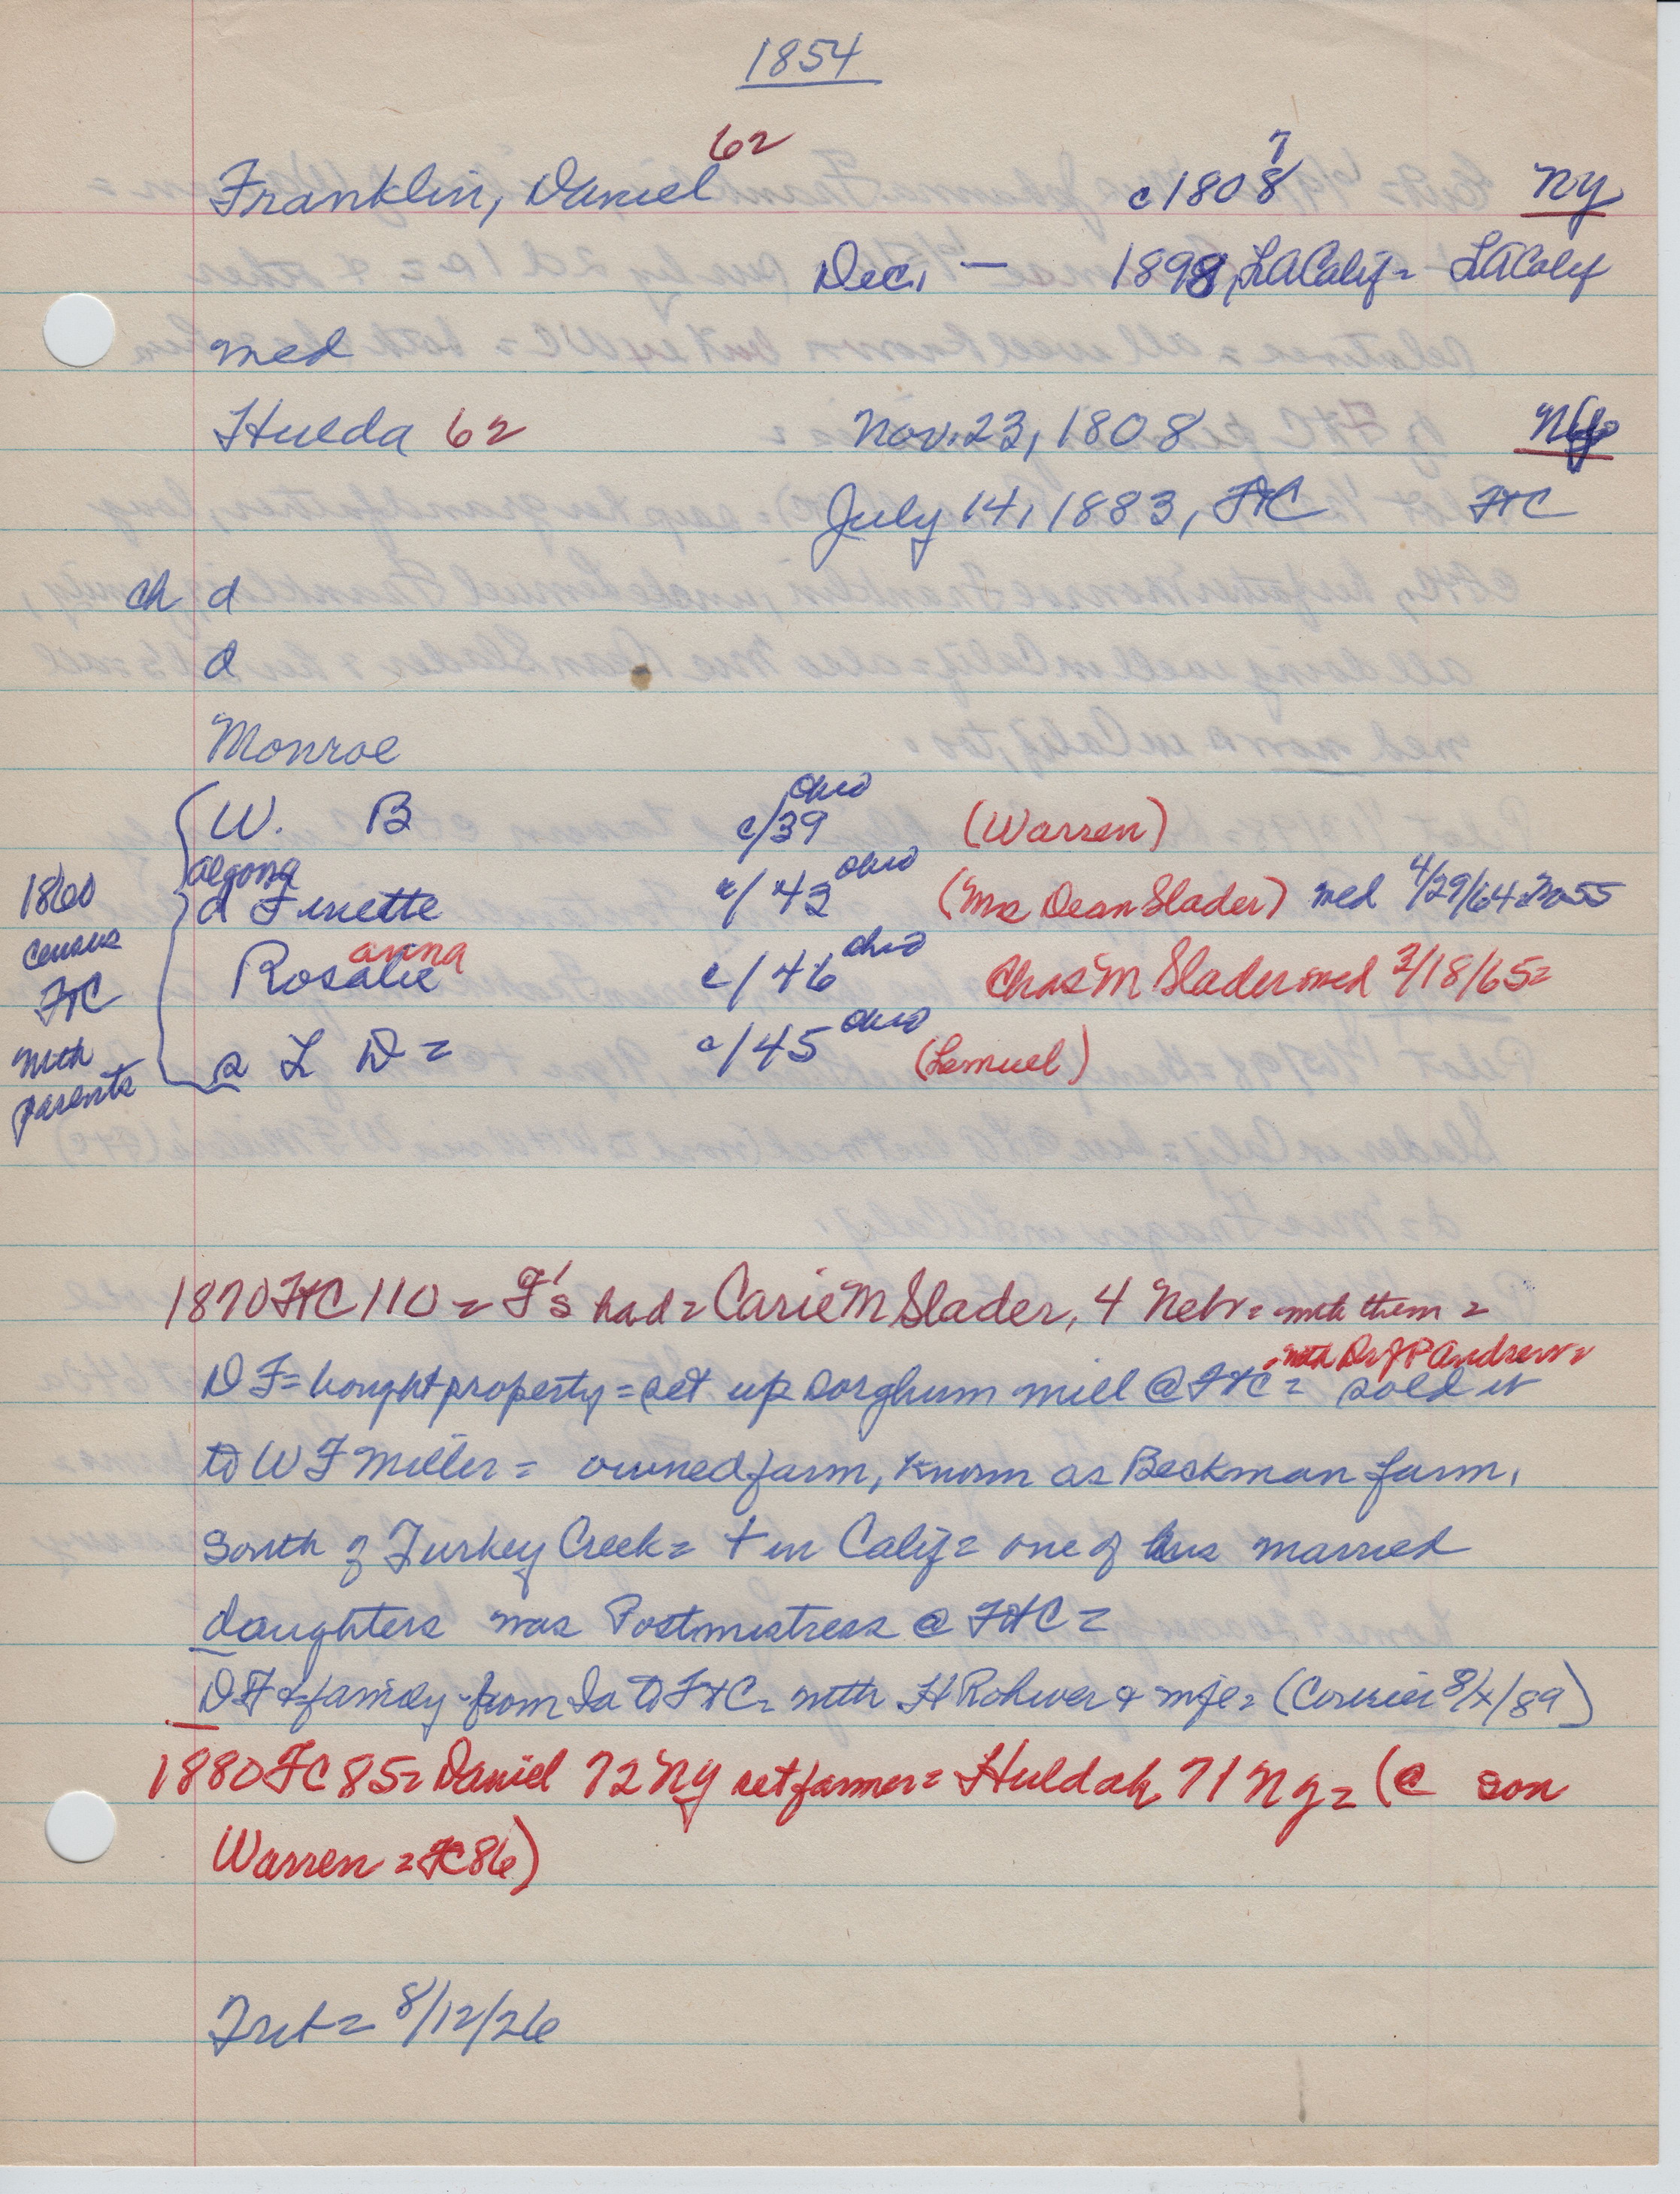 1854
62
Franklin, Daniel c 1808 7 NY
Dec. — 1898, LA Calif = LA Calif
med
Hulda 62 Nov. 23, 1808 NY
July 14, 1883, FtC FtC
ch d
d
Monroe
W. B c/39 Ohio (Warren)
algona
d Finette c/42 Ohio (Mrs Dean Slader) med 4/29/64
Rosalie anna c/46 Ohio Chas M Slader med 2/18/65=
s L D = c/45 Ohio (Lemuel)
1860
census
FtC
with
parents
1870 FtC 110 = F's had = Carie M Slader, 4 Nebr = with them =
with Dr J P Andrews =
DF = bought property = set up sorghum mill @ FtC = sold it
to W F Miller = owned farm, known as Beckman farm,
South of Turkey Creek = + in Calif = one of his married
daughters was Postmistress @ FtC =
DF & family from Ia to FtC = with H Rohwer & wife = (Courier 8/x/89)
1880 FC 85 = Daniel 72 NY ret farmer = Huldah 71 NY = (@ son
Warren = FC 86)
8/12/26